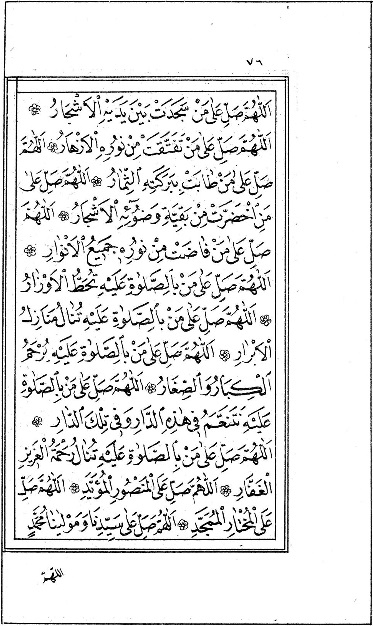 ٧٦
اَللّٰهُمَّ صَلِّ عَلٰى مَنْ سَجَدَتْ بَيْنَ يَدَيْهِ الْاَشْجَارُ
اَللّٰهُمَّ صَلِّ عَلٰى مَنْ تَفَتَّقَتْ مِنْ نُورِهِ الْاَزْهَارُ اَللّٰهُمَّ
صَلِّ عَلٰى مَنْ طَابَتْ بِبَرَكَتِهِ الثِّمَارُ اَللّٰهُمَّ صَلِّ عَلٰى
مَنْ اخْضَرَّتْ مِنْ بَقِيَّةِ وَضُوۤئِهِ الْاَشْجَارُ اَللّٰهُمَّ
صَلِّ عَلٰى مَنْ فَاضَتْ مِنْ نُورِهِ جَمِيعُ الْاَنْوَارِ
اَللّٰهُمَّ صَلِّ عَلٰى مَنْ بِالصَّلٰوةِ عَلَيْهِ تُحَطُّ الْاَوْزَارُ
اَللّٰهُمَّ صَلِّ عَلٰى مَنْ بِالصَّلٰوةِ عَلَيْهِ تُنَالُ مَنَازِلُ
الْاَبْرَارِ اَللّٰهُمَّ صَلِّ عَلٰى مَنْ بِالصَّلٰوةِ عَلَيْهِ يُرْحَمُ
الْكِبَارُ وَالصِّغَارُ اَللّٰهُمَّ صَلِّ عَلٰى مَنْ بِالصَّلٰوةِ
عَلَيْهِ نَتَنَعَّمُ فِي هٰذِهِ الدَّارِ وَفِي تِلْكَ الدَّارِ
اَللّٰهُمَّ صَلِّ عَلٰى مَنْ بِالصَّلٰوةِ عَلَيْهِ تُنَالُ رَحْمَةُ الْعَزِيزِ
الْغَفَّارِ اَللّٰهُمَّ صَلِّ عَلَى الْمَنْصُورِ الْمُؤَيَّدِ اَللّٰهُمَّ صَلِّ
عَلَى الْمُخْتَارِ الْمُمَجَّدِ اَللّٰهُمَّ صَلِّ عَلٰى سَيِّدِنَا وَمَوْلٰينَا مُحَمَّدٍ
اللّٰهُمَّ